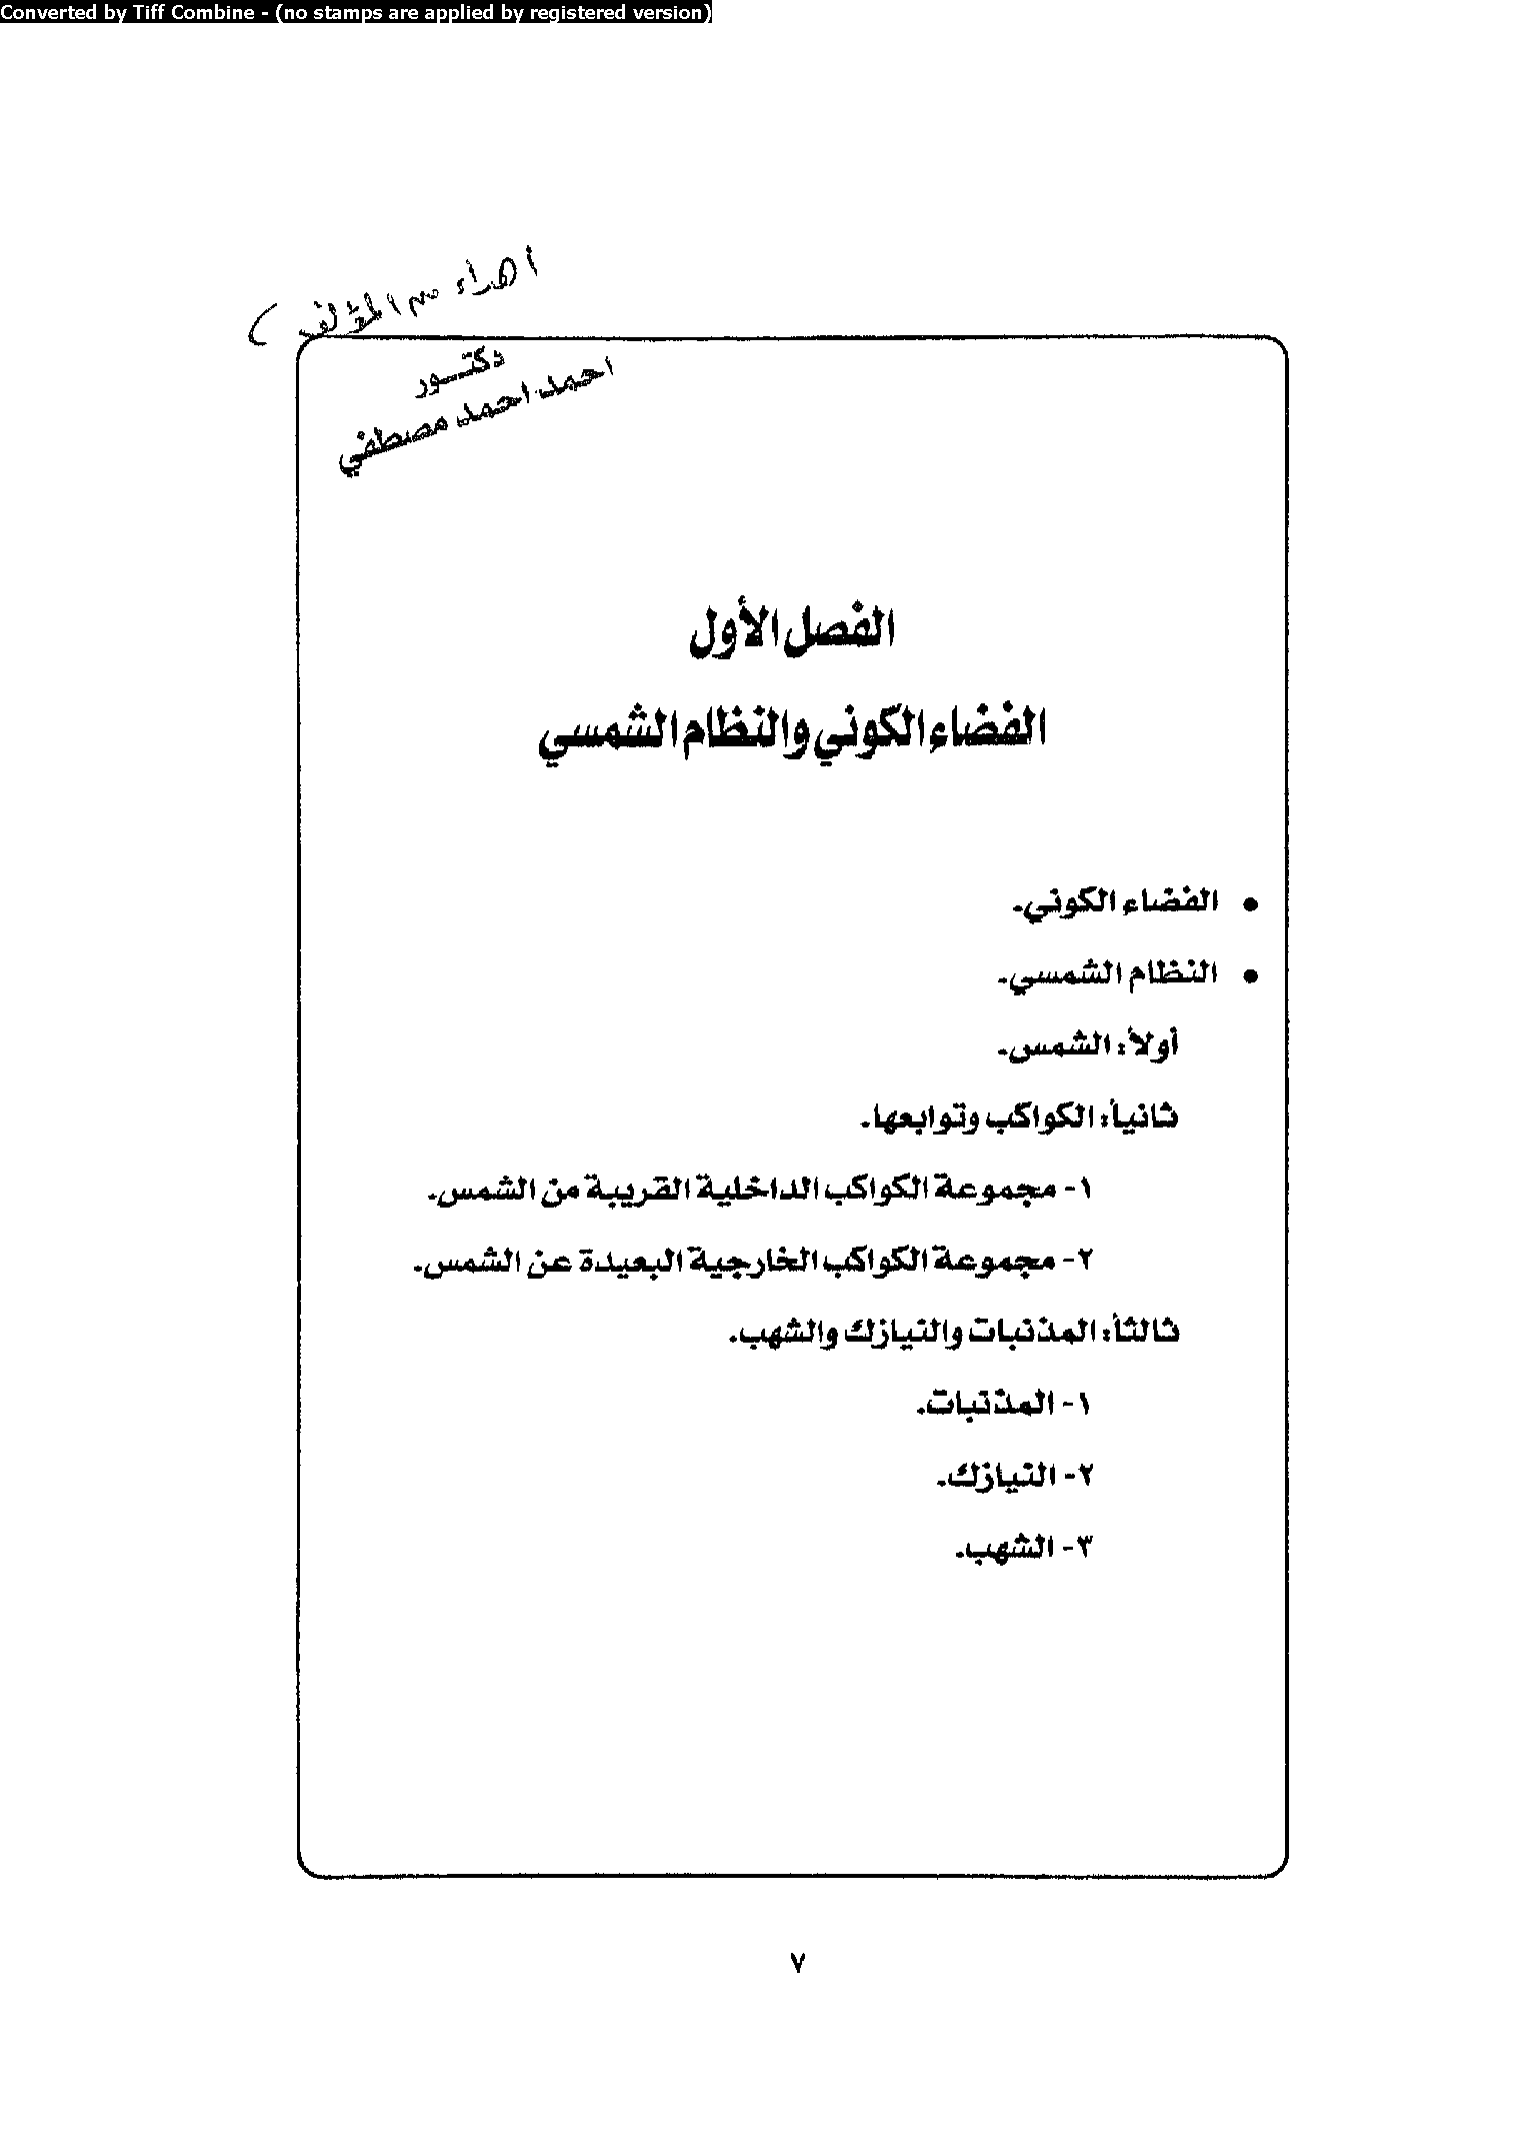 Converted by Tiff Combine - (no stamps are applied by registered version)
اهداء من المؤلف
دكتـــور
احمد احمد مصطفي
الفصل الأول
الفضاء الكوني والنظام الشمسي
• الفضاء الكوني.
• النظام الشمسي.
أولاً: الشمس.
ثانياً: الكواكب وتوابعها.
١- مجموعة الكواكب الداخلية القريبة من الشمس.
٢- مجموعة الكواكب الخارجية البعيدة عن الشمس.
ثالثاً: المذنبات والنيازك والشهب.
١- المذنبات.
٢- النيازك.
٣- الشهب.
٧